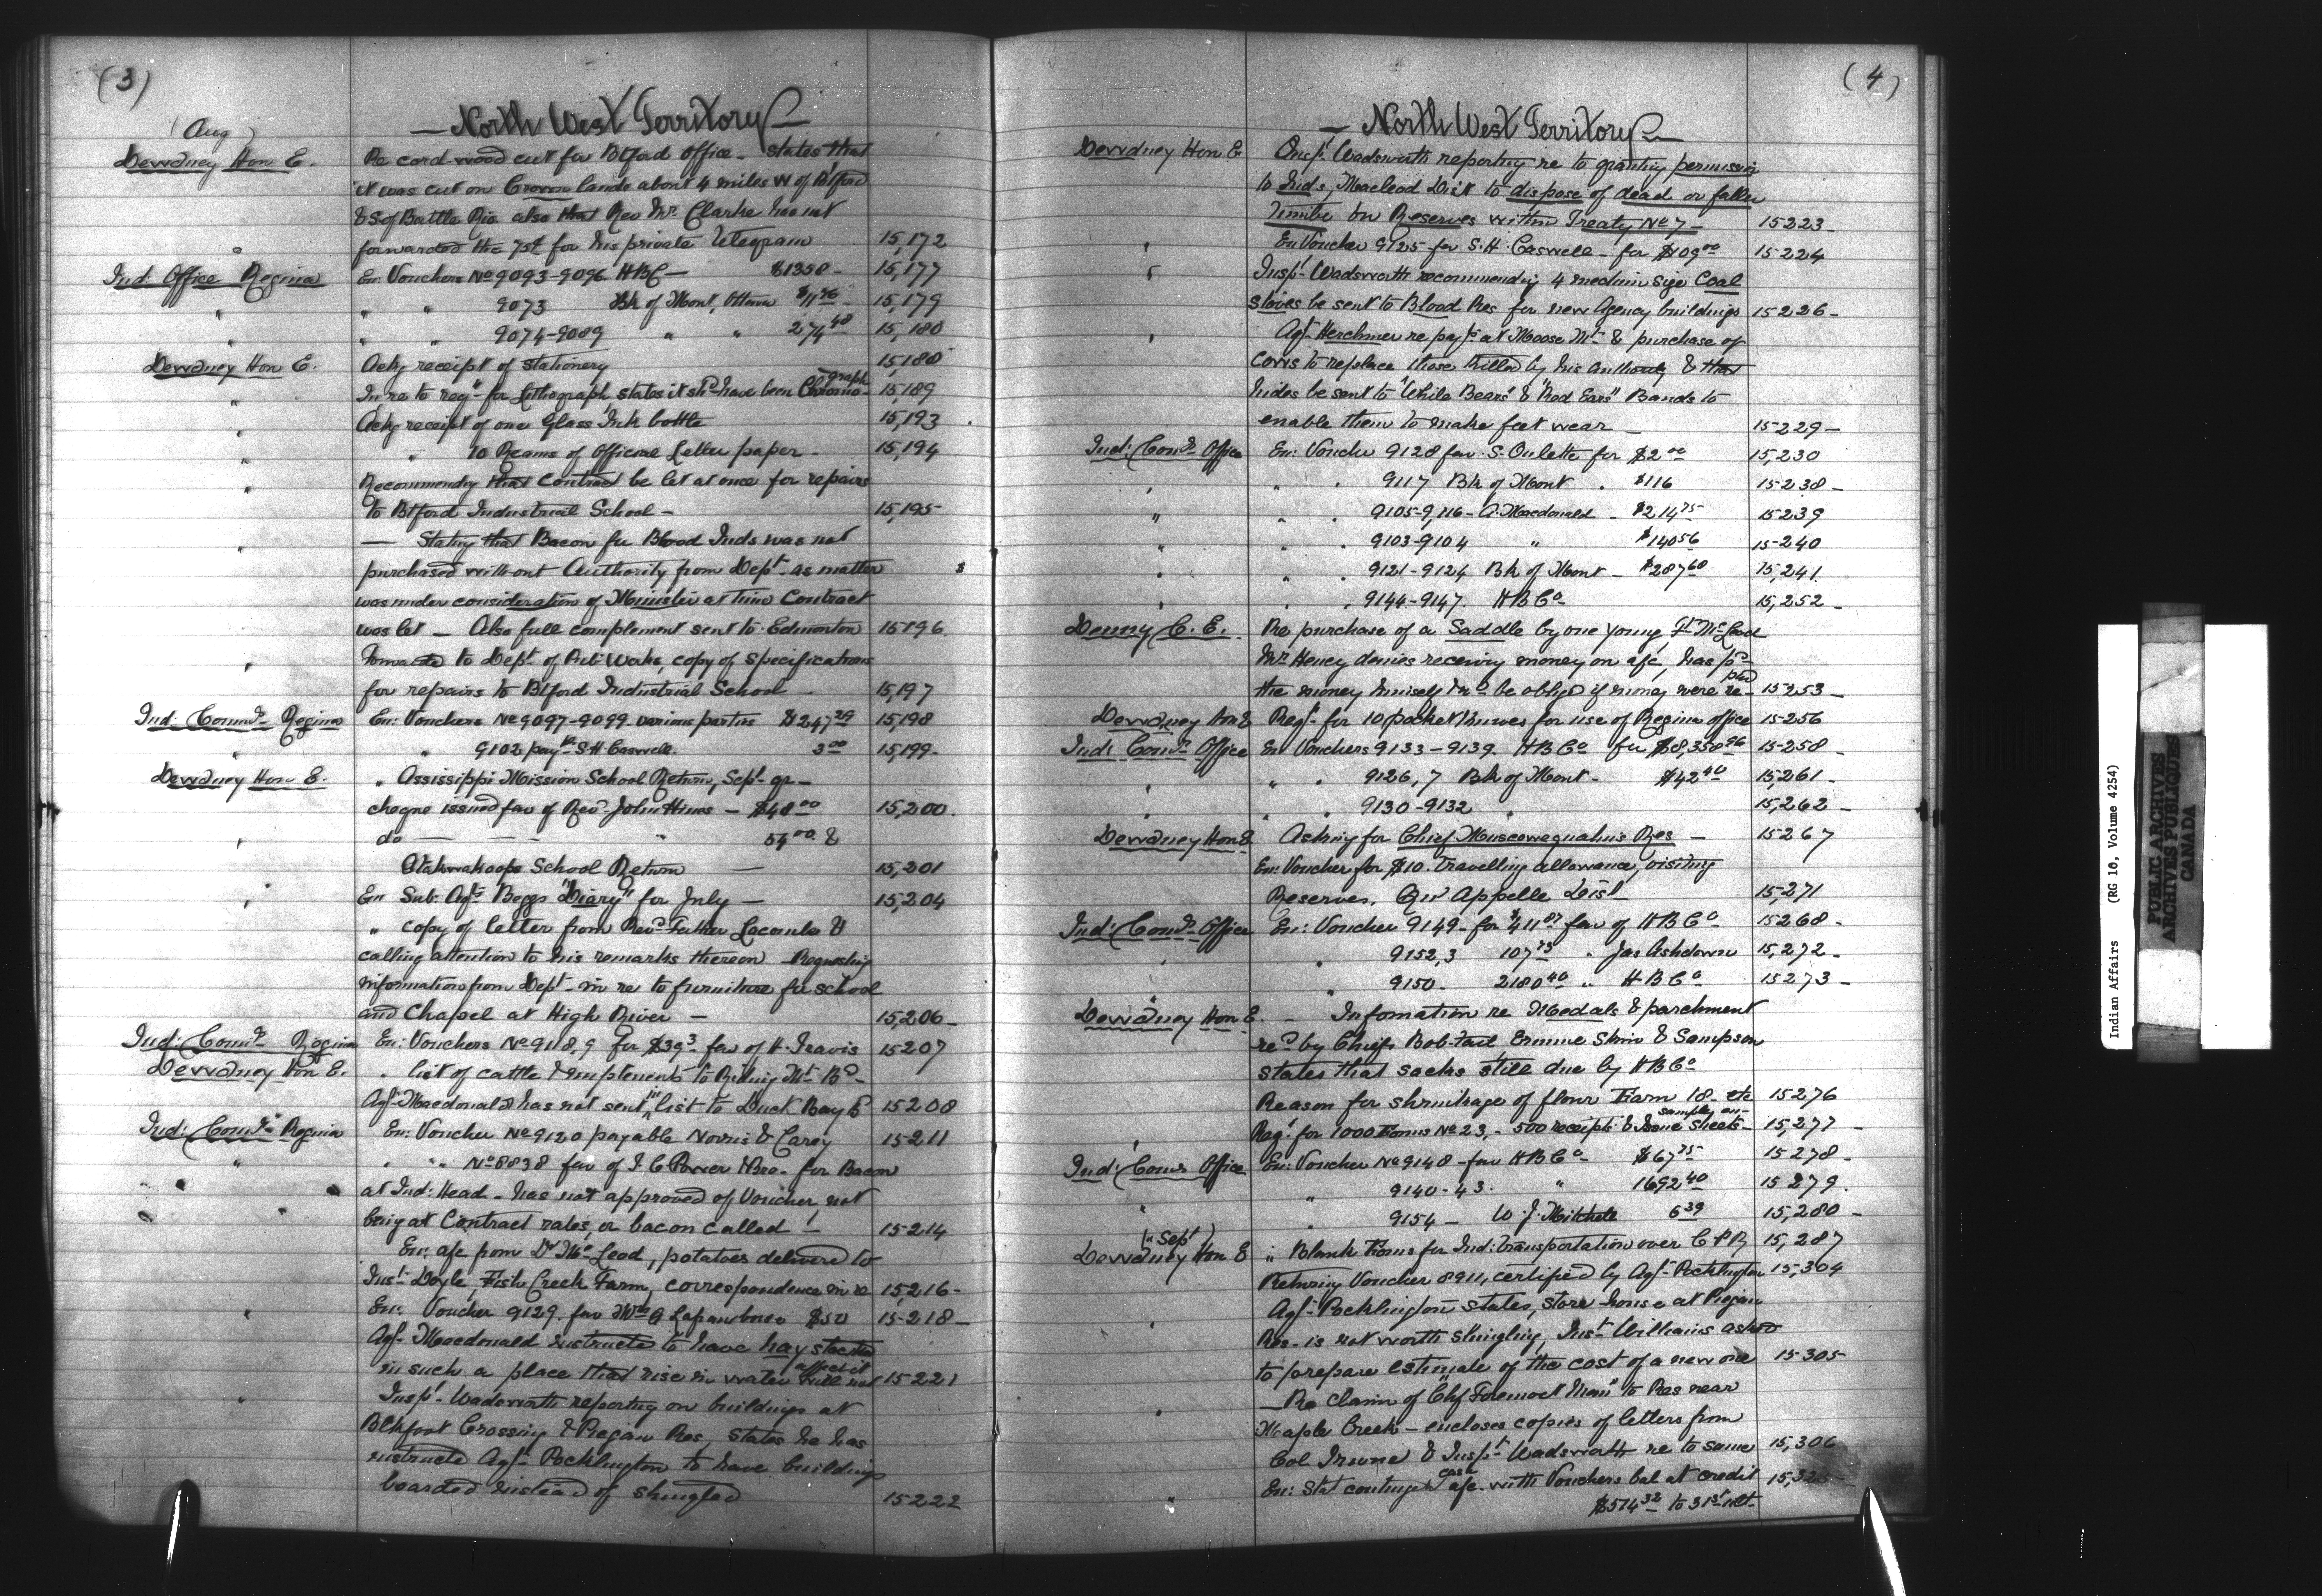 (3)
— North West Territory —
(Aug)
Dewdney Hon E. Re cord wood cut for Btford Office - states that
it was cut on Crown lands about 4 miles W of Btford
& S of Battle Riv. also that Rev Mr. Clarke has not
forwarded the 75¢ for his private telegram 15,172
Ind: Office Regina En: Vouchers No 9093-9096 HBC — $1358 - 15,177
" " " 9073 Bk of Mont, Ottawa 15,179
" " " 9074-9089 " " 274 48 15,180
Dewdney Hon E. Ackg receipt of stationery 15,188
" In re to reqn for Lithograph, states it shd have been Chromo-graph 15,189
" Ackg receipt of one Glass Ink bottle 15,193
" " 10 Reams of Official Letter paper - 15,194
" Recommendg that Contract be let at once for repairs
to Btford Industrial School - 15,195
" — Statg that Bacon for Blood Inds was not
purchased without Authority from Dept - as matter
was under consideration of Minister at time Contract
was let — Also full complement sent to Edmonton 15196
" Forwards to Dept. of Pub: Works, copy of specifications
for repairs to Btford Industrial School - 15,197
Ind: Commr. Regina En: Vouchers No 9097-9099 various parties $247 29 15,198
" " 9102 pay S H Caswell. 3 00 15,199-
Dewdney Hon E. " Assissippi Mission School Return, Sept - qr -
cheque issued fav of Revd. John Hines — $48 00 15,200.
" do — — — " 54 00. &
Atahwakoops School Return — 15,201
" En Sub: Agt. Beggs "Diary" for July — 15,204
" copy of letter from Revd Father Lacombe &
calling attention to his remarks thereon - Requestg
information from Dept - in re to furniture for school
and Chapel at High River — 15,206-
Ind: Commr. Regina En: Vouchers No 9118,9 for $39 3 fav of H. Travis 15207
Dewdney Hon E. " list of cattle & implements to Riding Mt Bd -
Agt - Macdonald has not sent in list to Duck Bay B 15208
Ind: Commr. Regina En: Voucher No 9120 payable Norris & Carey 15211
" " " No 8838 fav of I. G Power & Bro. for Bacon
at Ind: Head - has not approved of Voucher, not
being at Contract rates, or bacon called — 15214
En: a/c from Dr McLead, potatoes delivered to
Inst. Doyle, Fish Creek Farm, correspondence in re 15,216-
" En: Voucher 9129 fav $50 15218-
Agt - Macdonald instructed to have hay stacked
in such a place that rise in water will not affect it 15221
" Inspr - Wadsworth reporting on buildings at
Blkfoot Crossing & Piegan Res, states he has
instructed Agt - Pocklington to have buildings
boarded instead of shingled 15222
(4)
— North West Territory —
Dewdney Hon E Inspr Wadsworth reporting re to granting permission
to Inds, Macleod Dist to dispose of dead or fallen
timber on Reserves within Treaty No 7 — 15223-
" En Voucher 9125 - fav S. H. Caswell - for $109 00 15224
" Inspr - Wadsworth recommending 4 medium size Coal
stoves be sent to Blood Res for new Agency buildings 15226-
" Agt - Herchmer re payts at Moose Mt. & purchase of
cows to replace those killed by his authority & that
hides be sent to "White Bears" & "Red Ears" Bands to
enable them to make foot wear — 15229-
Ind: Comr. Office En: Voucher 9128 fav. S. Oulette for $2 00 15,230
" " " 9117 Bk of Mont " $116 15238-
" " " 9105-9,116 - A. Macdonald - $214 75 15239
" " " 9103-9104 " $140 56 15-240
" " " 9121-9124 Bk of Mont - $287 68 15,241.
" " " 9144-9147. H B Co 15,252-
Denny C. E. Re purchase of a Saddle by one Young, Ft McLeod
Mr. Heney denies receiving money on a/c, has pd
the money himself & wd be obliged if money were re-pd 15253-
Dewdney Hon E Reqn for 10 pocket knives for use of Regina office 15256
Ind: Comr. Office En Vouchers 9133-9139 H B Co for $8,358 96 15258-
" " 9126, 7 Bk of Mont - $42 40 15,261-
" " 9130-9132 " 15,262-
Dewdney Hon E Asking for Chief Muscowequahn's Res — 15267
En: Voucher for $10. travelling allowance, visiting
Reserves, Qu' Appelle Dist 15,271
Ind: Comr. Office En: Voucher 9149 - for $411 87 fav of H B Co 15268-
" " 9152,3 107 75 " Jas Ashdown 15,272-
" " 9150 - 2180 40 " H B Co 15273-
Dewdney Hon E. - Information re Medals & parchment
recd by Chiefs Bob-tail Ermine Skin & Sampson
states that sacks still due by H B Co
Reason for shrinkage of flour Farm 18 - etc 15276
" Reqn for 1000 Forms No 23, - 500 receipts & Issue sheets - sample en - 15,277-
Ind: Comr Office En: Voucher No 9148 - fav H B Co - $67 75 15278-
" 9140-43. " 1692 40 15279.
" " 9154 - W. J. Mitchell 6 39 15,280-
(Sept)
Dewdney Hon E " Blank Forms for Ind: transportation over C P R 15,287
Returng Voucher 8911, certified by Agt - Pocklington 15,304
" Agt - Pocklington states, store house at Piegan
Res - is not worth shingling, Inst. Williams asked
to prepare estimate of the cost of a new one 15305
" — Re claim of Chf "Foremost Man" to Res near
Maple Creek — encloses copies of letters from
Col Irvine & Inspr. Wadsworth re to same 15,306
" En: Stat contingt cash a/c. with Vouchers bal at credit 15,32
$514 32 to 31st ult.
Indian Affairs (RG 10, Volume 4254)
PUBLIC ARCHIVES
ARCHIVES PUBLIQUES
CANADA